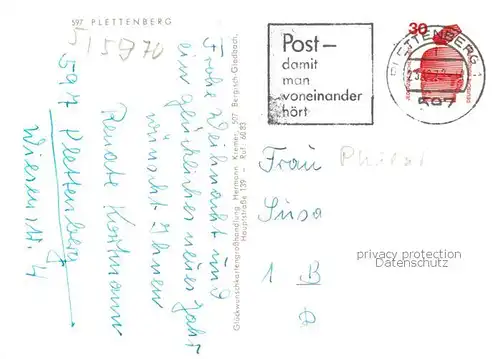 597 PLETTENBERG
5/5970
Frohe Weihnacht und
ein glückliches neues Jahr
wünscht Ihnen
Renate Kortmann
597 Plettenberg
Wiesenstr. 4
Glückwunschkartengroßhandlung Hermann Kiemer, 507 Bergisch-Gladbach,
Hauptstraße 139 – Ruf 6083
Post –
damit
man
voneinander
hört
PLETTENBERG 1
597
30
Frau
Susa
1 B
privacy protection
Datenschutz